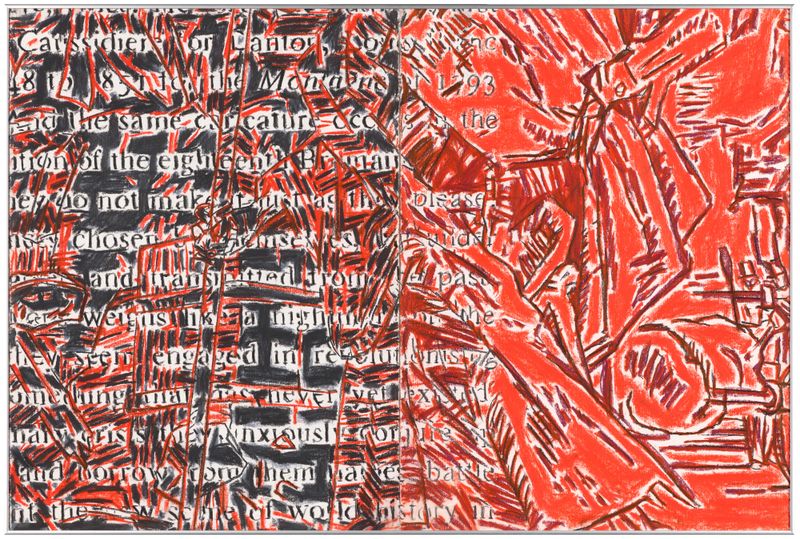 Caussidière for Danton,
48 to 1851 for the Montagne of 1793
the same caricature occurs in the
of the eighteenth Brumai
do not make it just as they please
chosen themselves, under
and transmitted from the past
weighs like a nightmare on the
they seem engaged in revolutionising
omething that has never yet existed
crisis they anxiously conjure
and borrow from them names, battle
the new scene of world history in